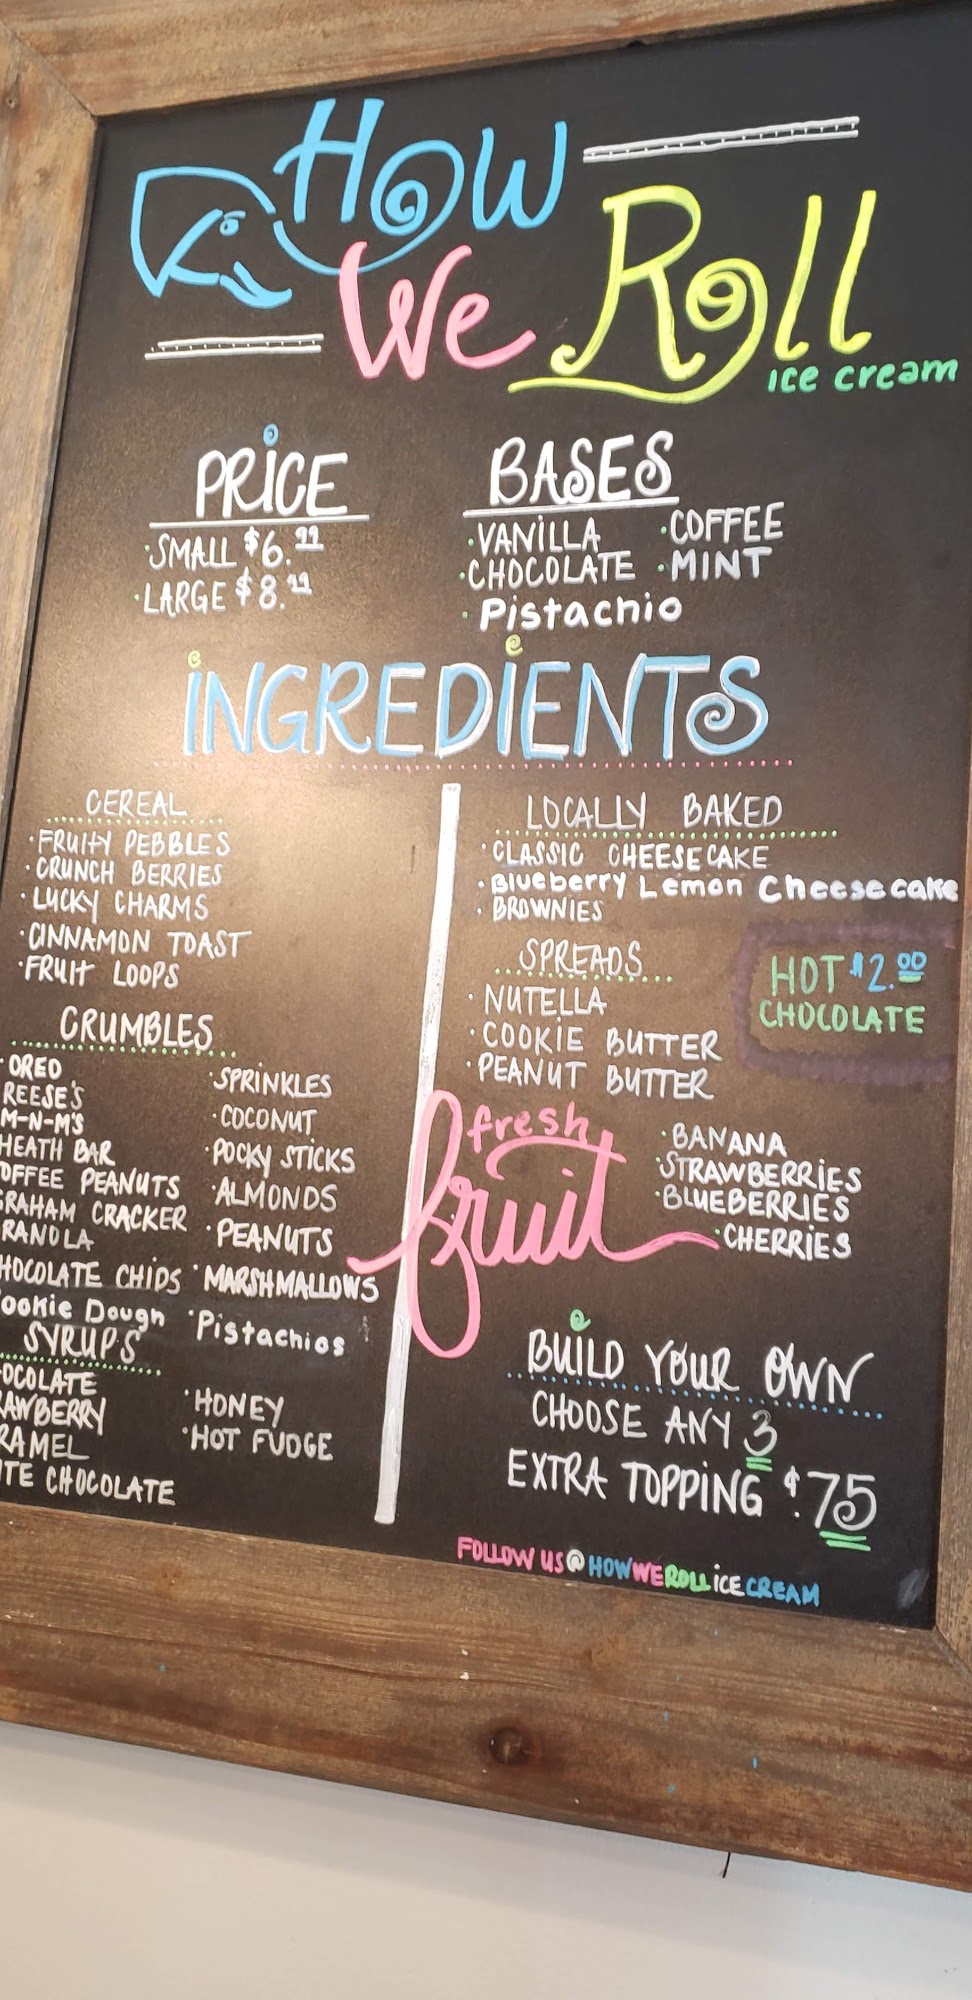 How
We Roll
ice cream
PRICE
·SMALL $6.99
·LARGE $8.99
BASES
·VANILLA ·COFFEE
·CHOCOLATE ·MINT
·Pistachio
INGREDIENTS
CEREAL
·FRUITY PEBBLES
·CRUNCH BERRIES
·LUCKY CHARMS
·CINNAMON TOAST
·FRUIT LOOPS
CRUMBLES
·OREO
REESE'S
M-N-M'S
HEATH BAR
OFFEE PEANUTS
RAHAM CRACKER
RANOLA
HOCOLATE CHIPS
ookie Dough
·SPRINKLES
·COCONUT
·POCKY STICKS
·ALMONDS
·PEANUTS
·MARSHMALLOWS
·Pistachios
SYRUPS
OCOLATE
RAWBERRY
RAMEL
ITE CHOCOLATE
·HONEY
·HOT FUDGE
LOCALLY BAKED
·CLASSIC CHEESECAKE
·Blueberry Lemon Cheesecake
·BROWNIES
SPREADS
·NUTELLA
·COOKIE BUTTER
·PEANUT BUTTER
HOT $2.00
CHOCOLATE
fresh
fruit
·BANANA
·STRAWBERRIES
·BLUEBERRIES
·CHERRIES
BUILD YOUR OWN
CHOOSE ANY 3
EXTRA TOPPING $.75
FOLLOW US@HOWWEROLLICECREAM